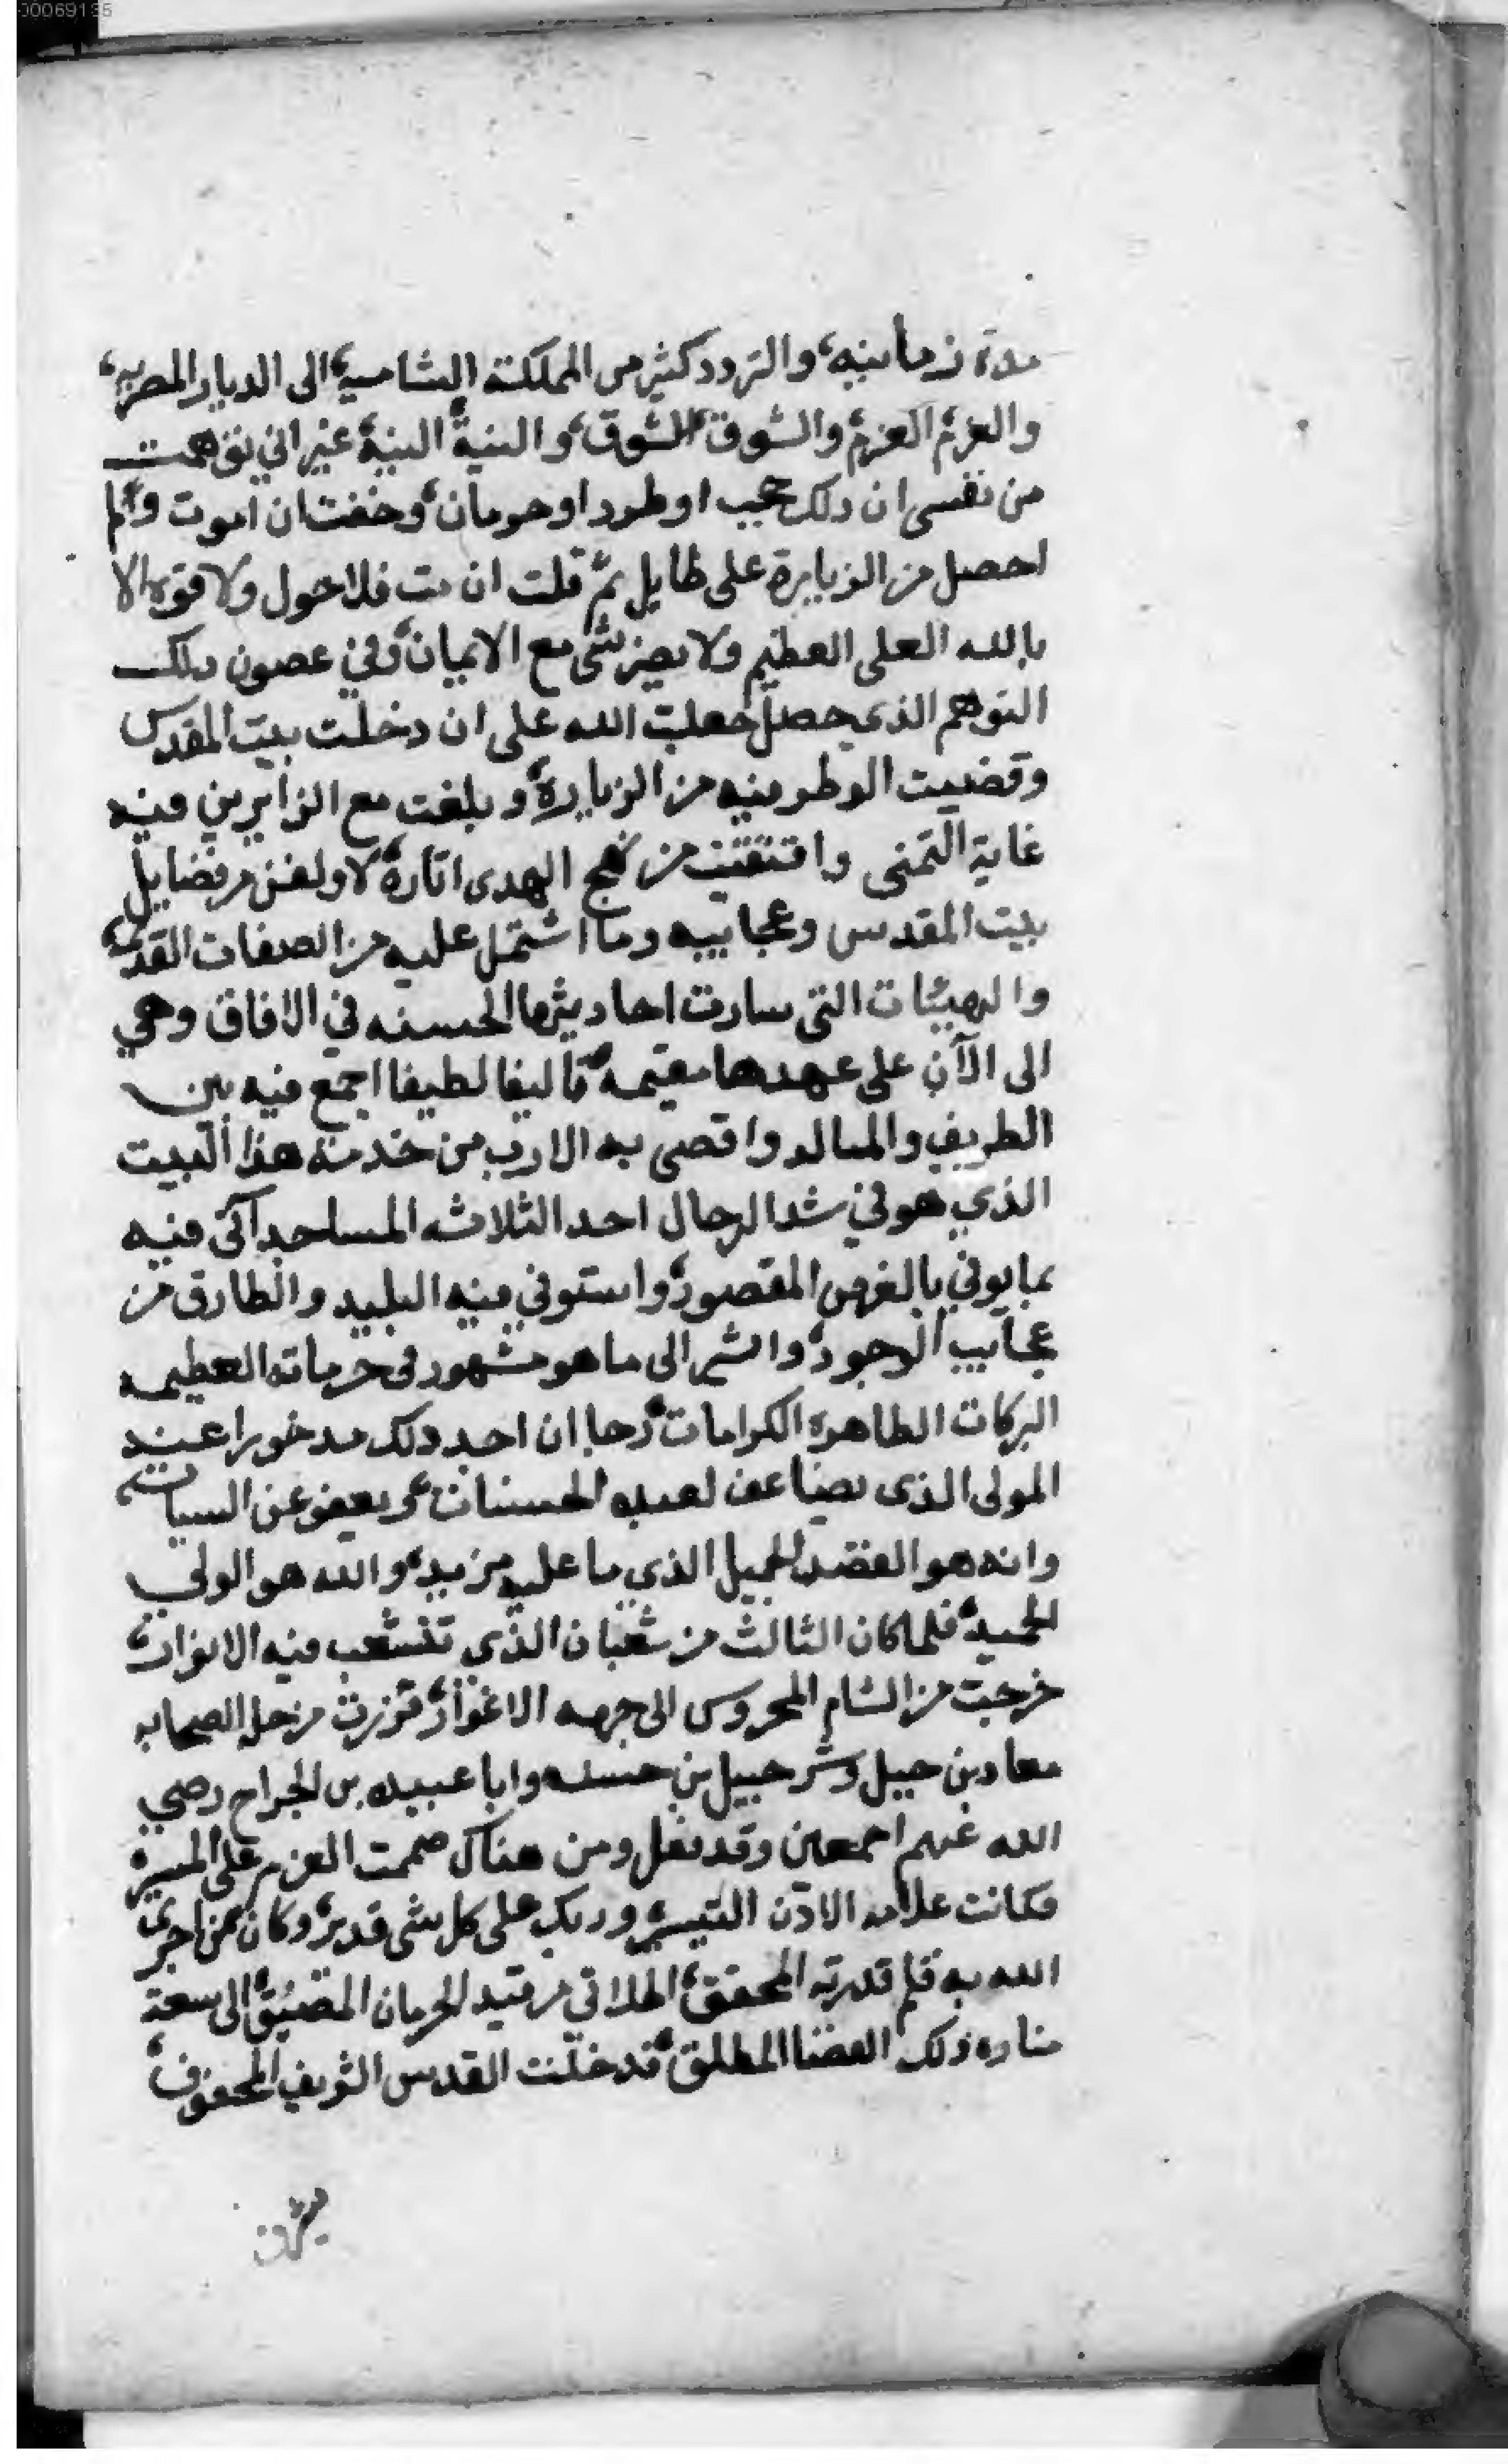 00069135
مدة زمانيه، والتردد كثير من المملكة الشامية، الى الديار المصريه،
والعزم العزم والشوق الشوق، والنية النية، غير اني توهمت
من نفسى ان ذلك حجب او طرد او حرمان، وخفت ان اموت ولم
احصل من الزيارة على طايل ثم قلت ان مت فلا حول ولا قوه الا
بالله العلى العظيم ولا يضر شى مع الايمان، وفي غصون ذلك
التوهم الذى حصل جعلت الله على ان دخلت بيت المقدس
وقضيت الوطر فيه من الزيارة، وبلغت مع الزايرين فيه
غاية التمنى واقتفيت من نهج الهدى اثاره، لاولفن من فضايل
بيت المقدس وعجايبه وما اشتمل عليه من الصفات القديمة،
والهيئات التى سارت احاديثها الحسنه في الافاق وهي
الى الآن على عهدها مقيمه، تاليفا لطيفا اجمع فيه بين
الطريف والتالد واقضى به الارب من خدمة هذا البيت
الذي هو في شد الرحال احد الثلاثه المساجد آتى فيه
بما يوفي بالغرض المقصود، واستوفي فيه التليد والطارق من
عجايب الوجود، واشير الى ما هو مشهور فى حرماته العظيمه
البركات الظاهره الكرامات، رجا ان اجد ذلك مدخورا عند
المولى الذى يضاعف لعبده الحسنات، ويعفو عن السيات،
وانه هو الفضل الجميل الذي ما عليه مزيد، والله هو الولي
الحميد، فلما كان الثالث من شعبان الذى تتشعب فيه الانوار،
خرجت من الشام المحروس الى جهه الاغوار، فزرت من حل الصحابه
معاد بن جبل وشرحبيل بن حسنه وابا عبيده بن الجراح رضي
الله عنهم اجمعين وقد فعل ومن هناك صممت العزم على المسير،
فكانت علامه الاذن التيسير وربك على كل شى قدير، وكان ممن اجرى
الله به قلم قدرته المحقق، اطلاقي من قيد الحرمان المضيق، الى سعة
مناره ذلك الفضا المطلق، فدخلت القدس الشريف المحفوف،